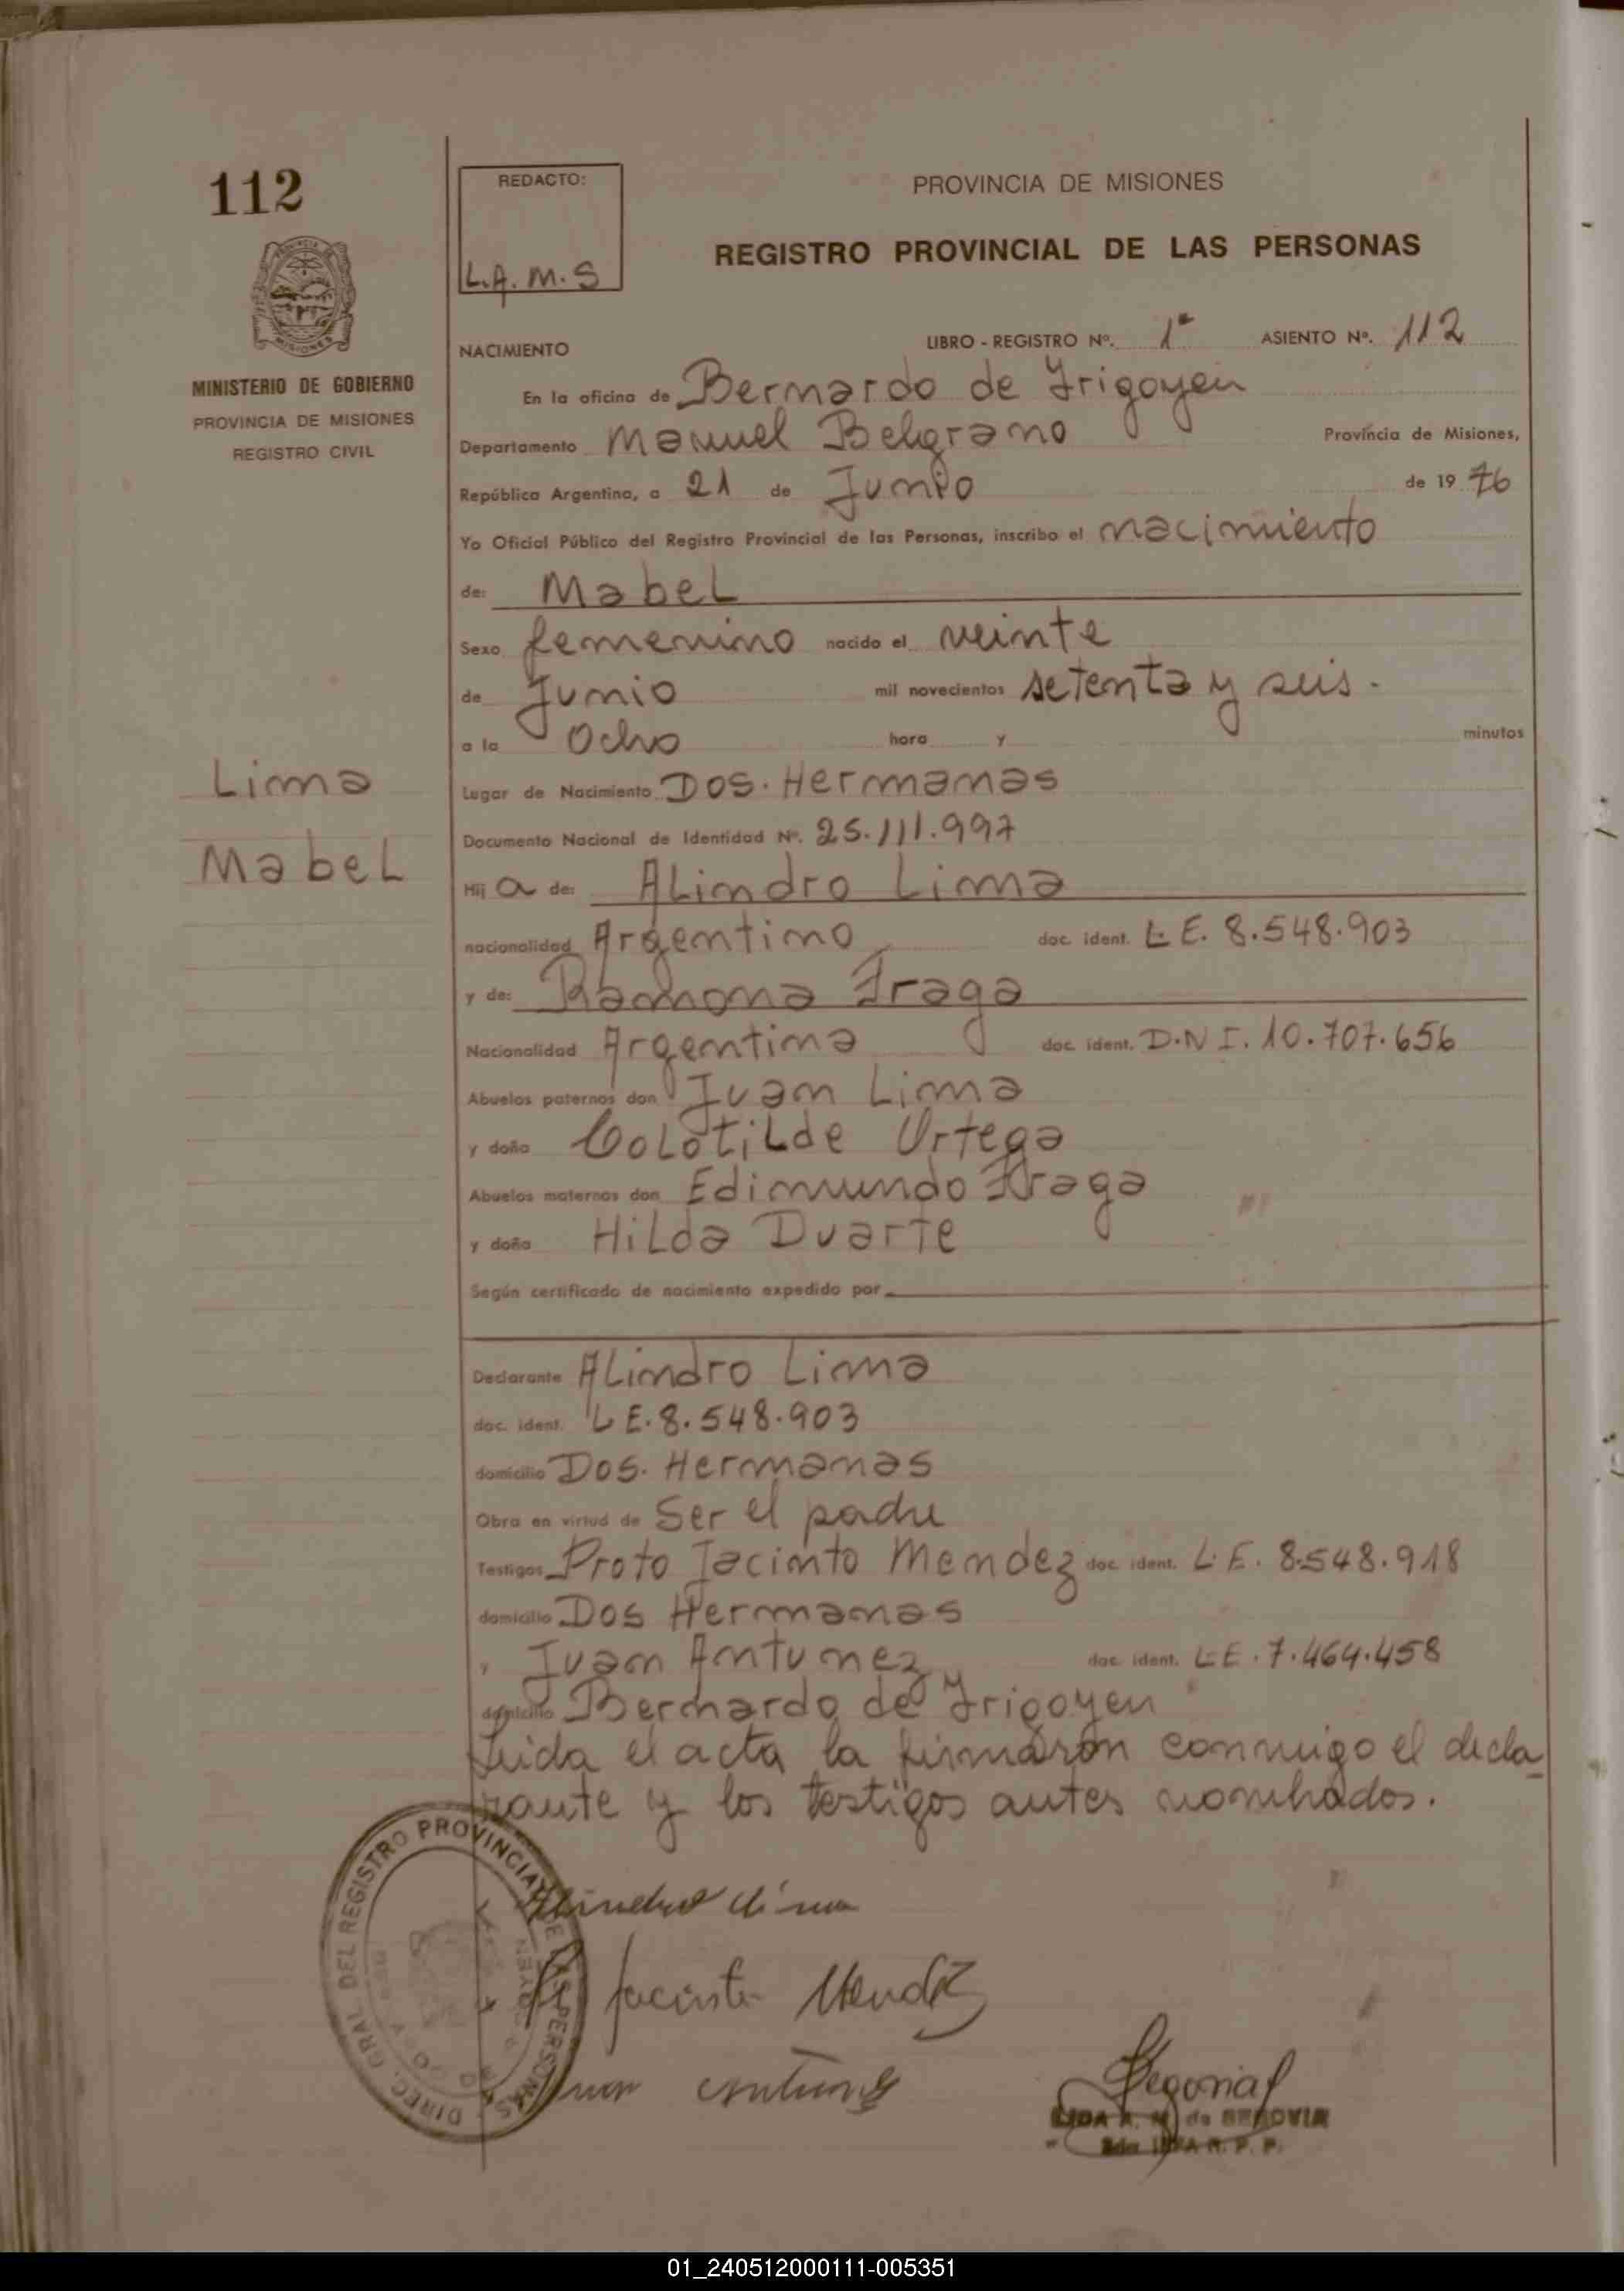 112
REDACTO:
L.A.M.S
PROVINCIA DE MISIONES
REGISTRO PROVINCIAL DE LAS PERSONAS
MINISTERIO DE GOBIERNO
PROVINCIA DE MISIONES
REGISTRO CIVIL
NACIMIENTO LIBRO - REGISTRO Nº. 1º ASIENTO Nº. 112
En la oficina de Bernardo de Irigoyen
Departamento Manuel Belgrano Provincia de Misiones,
República Argentina, a 21 de Junio de 19 76
Yo Oficial Público del Registro Provincial de las Personas, inscribo el nacimiento
de: Mabel
Sexo femenino nacido el veinte
de Junio mil novecientos setenta y seis.
a la Ocho hora y minutos
Lima
Mabel
Lugar de Nacimiento Dos. Hermanas
Documento Nacional de Identidad Nº. 25.111.997
Hij a de: Alindro Lima
nacionalidad Argentino doc. ident. L E. 8.548.903
y de: Ramona Fraga
Nacionalidad Argentina doc. ident. D.N I. 10.707.656
Abuelos paternos don Juan Lima
y doña Colotilde Ortega
Abuelos maternos don Edimundo Fraga
y doña Hilda Duarte
Según certificado de nacimiento expedido por
Declarante Alindro Lima
doc. ident. L E. 8.548.903
domicilio Dos. Hermanas
Obra en virtud de Ser el padre
Testigos Proto Jacinto Mendez doc. ident. L.E. 8.548.918
domicilio Dos Hermanas
y Juan Antunez doc. ident. L E. 7.464.458
domicilio Bernardo de Irigoyen
Leida el acta la firmaron conmigo el decla_
rante y los testigos antes nombrados.
DIREC. GRAL DEL REGISTRO PROVINCIAL DE LAS PERSONAS
Alindro Lima
Jacinto Mendez
LIDA A. M. de SEGOVIA
01_240512000111-005351